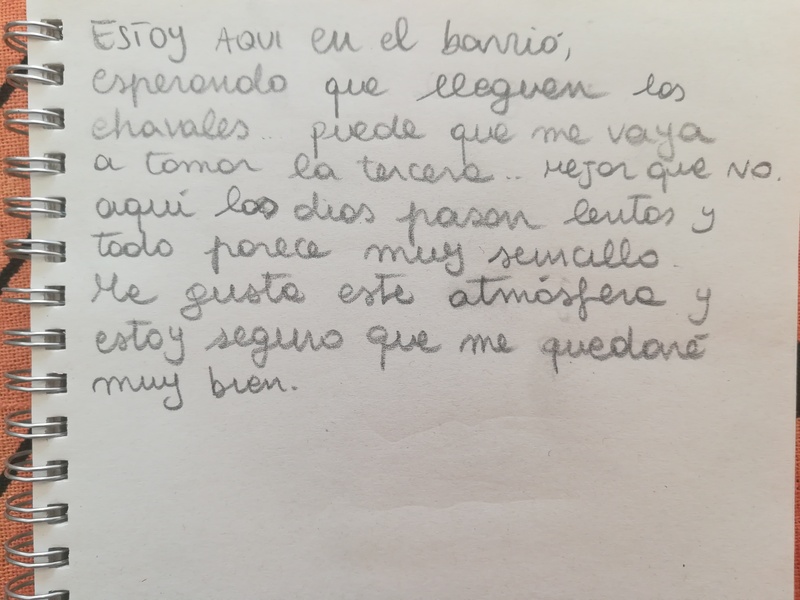 ESTOY AQUI en el barrió,
esperando que lleguen los
chavales.. puede que me vaya
a tomar la tercera.. Mejor que NO.
aquí los dias pasan lentos y
todo parece muy sencillo.
Me gusta este atmósfera y
estoy seguro que me quedaré
muy bien.